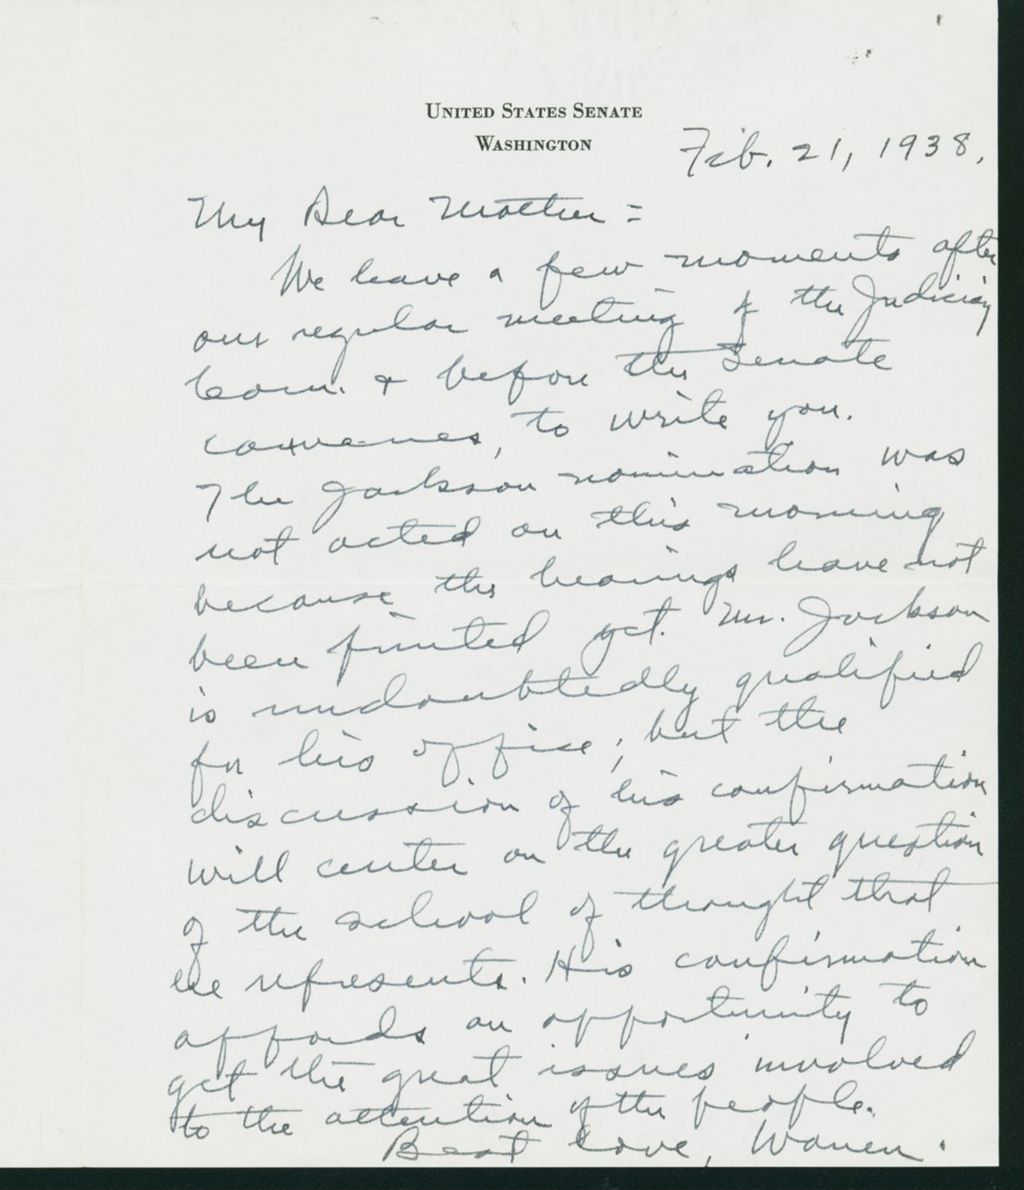 UNITED STATES SENATE
WASHINGTON
Feb. 21, 1938.
My Dear Mother =
We have a few moments after
our regular meeting of the Judiciary
Com. & before the Senate
convenes, to write you.
The Jackson nomination was
not acted on this morning
because the hearings have not
been printed yet. Mr. Jackson
is undoubtedly qualified
for his office; but the
discussion of his confirmation
will center on the greater question
of the school of thought that
he represents. His confirmation
affords an opportunity to
get the great issues involved
to the attention of the people.
Best love, Warren.